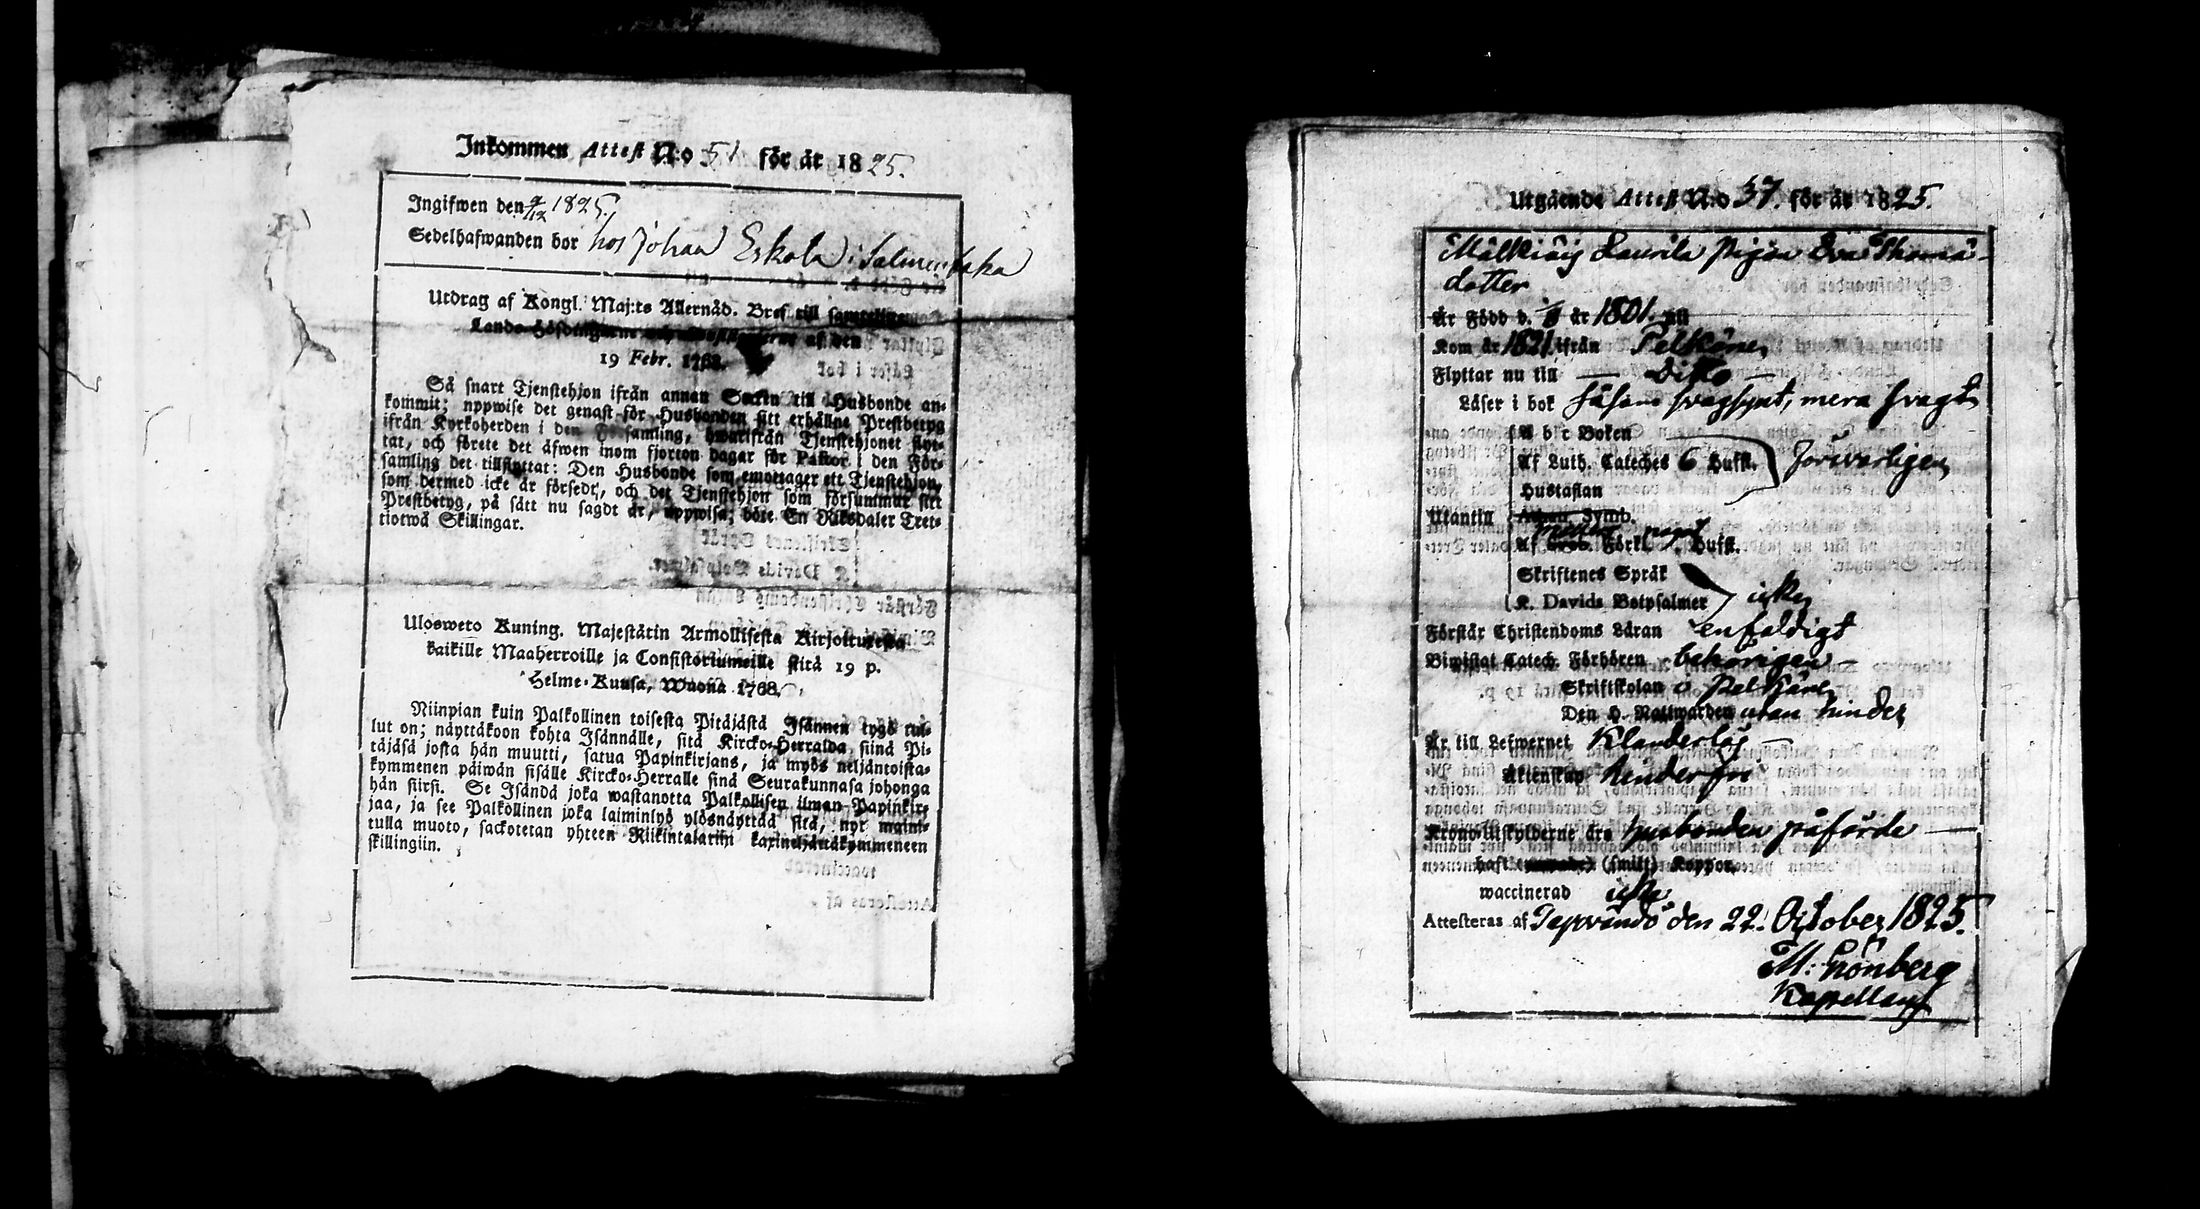 Inkommen Attest N:o 51 för år 1825.
Ingifwen den 4/12 1825.
Sedelhafwanden bor hos Johan Eskola i Salmentaka
Utdrag af Kongl. Maj:ts Allernåd. Bref till samtelige
Lands-Höfdingarne af den
19 Febr. 1768.
Så snart Tjenstehjon ifrån annan Socken till Husbonde an-
kommit; uppwise det genast för Husbonden sitt erhållne Prestbetyg
ifrån Kyrkoherden i den församling, hwarifrån Tjenstehjonet flyt-
tat, och förete det äfwen inom fjorton dagar för Pastor i den För-
samling det tillflyttat: Den Husbonde som emottager ett Tjenstehjon,
som dermed icke är försedt, och det Tjenstehjon som försummar sitt
Prestbetyg, på sätt nu sagdt är, uppwisa; böte En Riksdaler Tret-
tiotwå Skillingar.
Ulosweto Kuning. Majestätin Armollisesta Kirjoituxesta
kaikille Maaherroille ja Consistoriumeille siitä 19 p.
Helme-Kuusa, Wuona 1768.
Niinpian kuin Palkollinen toisesta Pitäjästä Isännen tygö tul-
lut on; näyttäkoon kohta Isännälle, sitä Kircko-Herralda siinä Pi-
täjäsä josta hän muutti, saatua Papinkirjans, ja myös neljäntoista-
kymmenen päiwän sisälle Kircko-Herralle siinä Seurakunnasa johonga
hän siirsi. Se Isändä joka wastanotta Palkollisen ilman Papinkir-
jaa, ja see Palkollinen joka laiminlyö ylösnäyttää sitä, nyt maini-
tulla muoto, sackotetan yhteen Riikintalariin kaxineljättäkymmeneen
skillingiin.
Utgående Attest N:o 37. för år 1825.
Mälkiäis Laurila Pigan Eva Thomä-
dotter
Är Född d. år 1801.
Kom år 1821 ifrån Pelkäne,
Flyttar nu till — Ditto —
Läser i bok svagsynt, mera svagt
A b c Boken
Af Luth. Cateches 6 Hufst. försvarligen
Hustaflan
Utantill Athan. Symb.
Af Förkl. Hufst.
Skriftenes Språk
K. Davids Botpsalmer icke,
Förstår Christendoms Läran enfaldigt
Biwistat Catech. Förhören behörigen
Skriftskolan i Pelkäne
Den H. Nattwarden utan hinder
Är till Lefwernet Klanderlös —
Äktenskap hinderfri
Krono-Utskylderne äro husbonden påförde —
haft (smitt) Koppor,
waccinerad icke
Attesteras af den 22. October 1825.
M: Lönberg
Kapellan